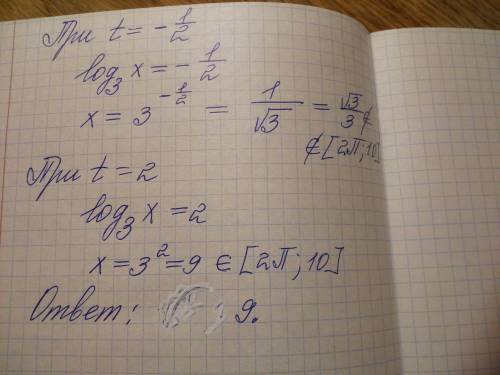 При t = -1/2
log₃ x = -1/2
x = 3^(-1/2) = 1/√3 = √3/3 ∉
∉ [2π; 10]
При t = 2
log₃ x = 2
x = 3² = 9 ∈ [2π; 10]
Ответ: 9.